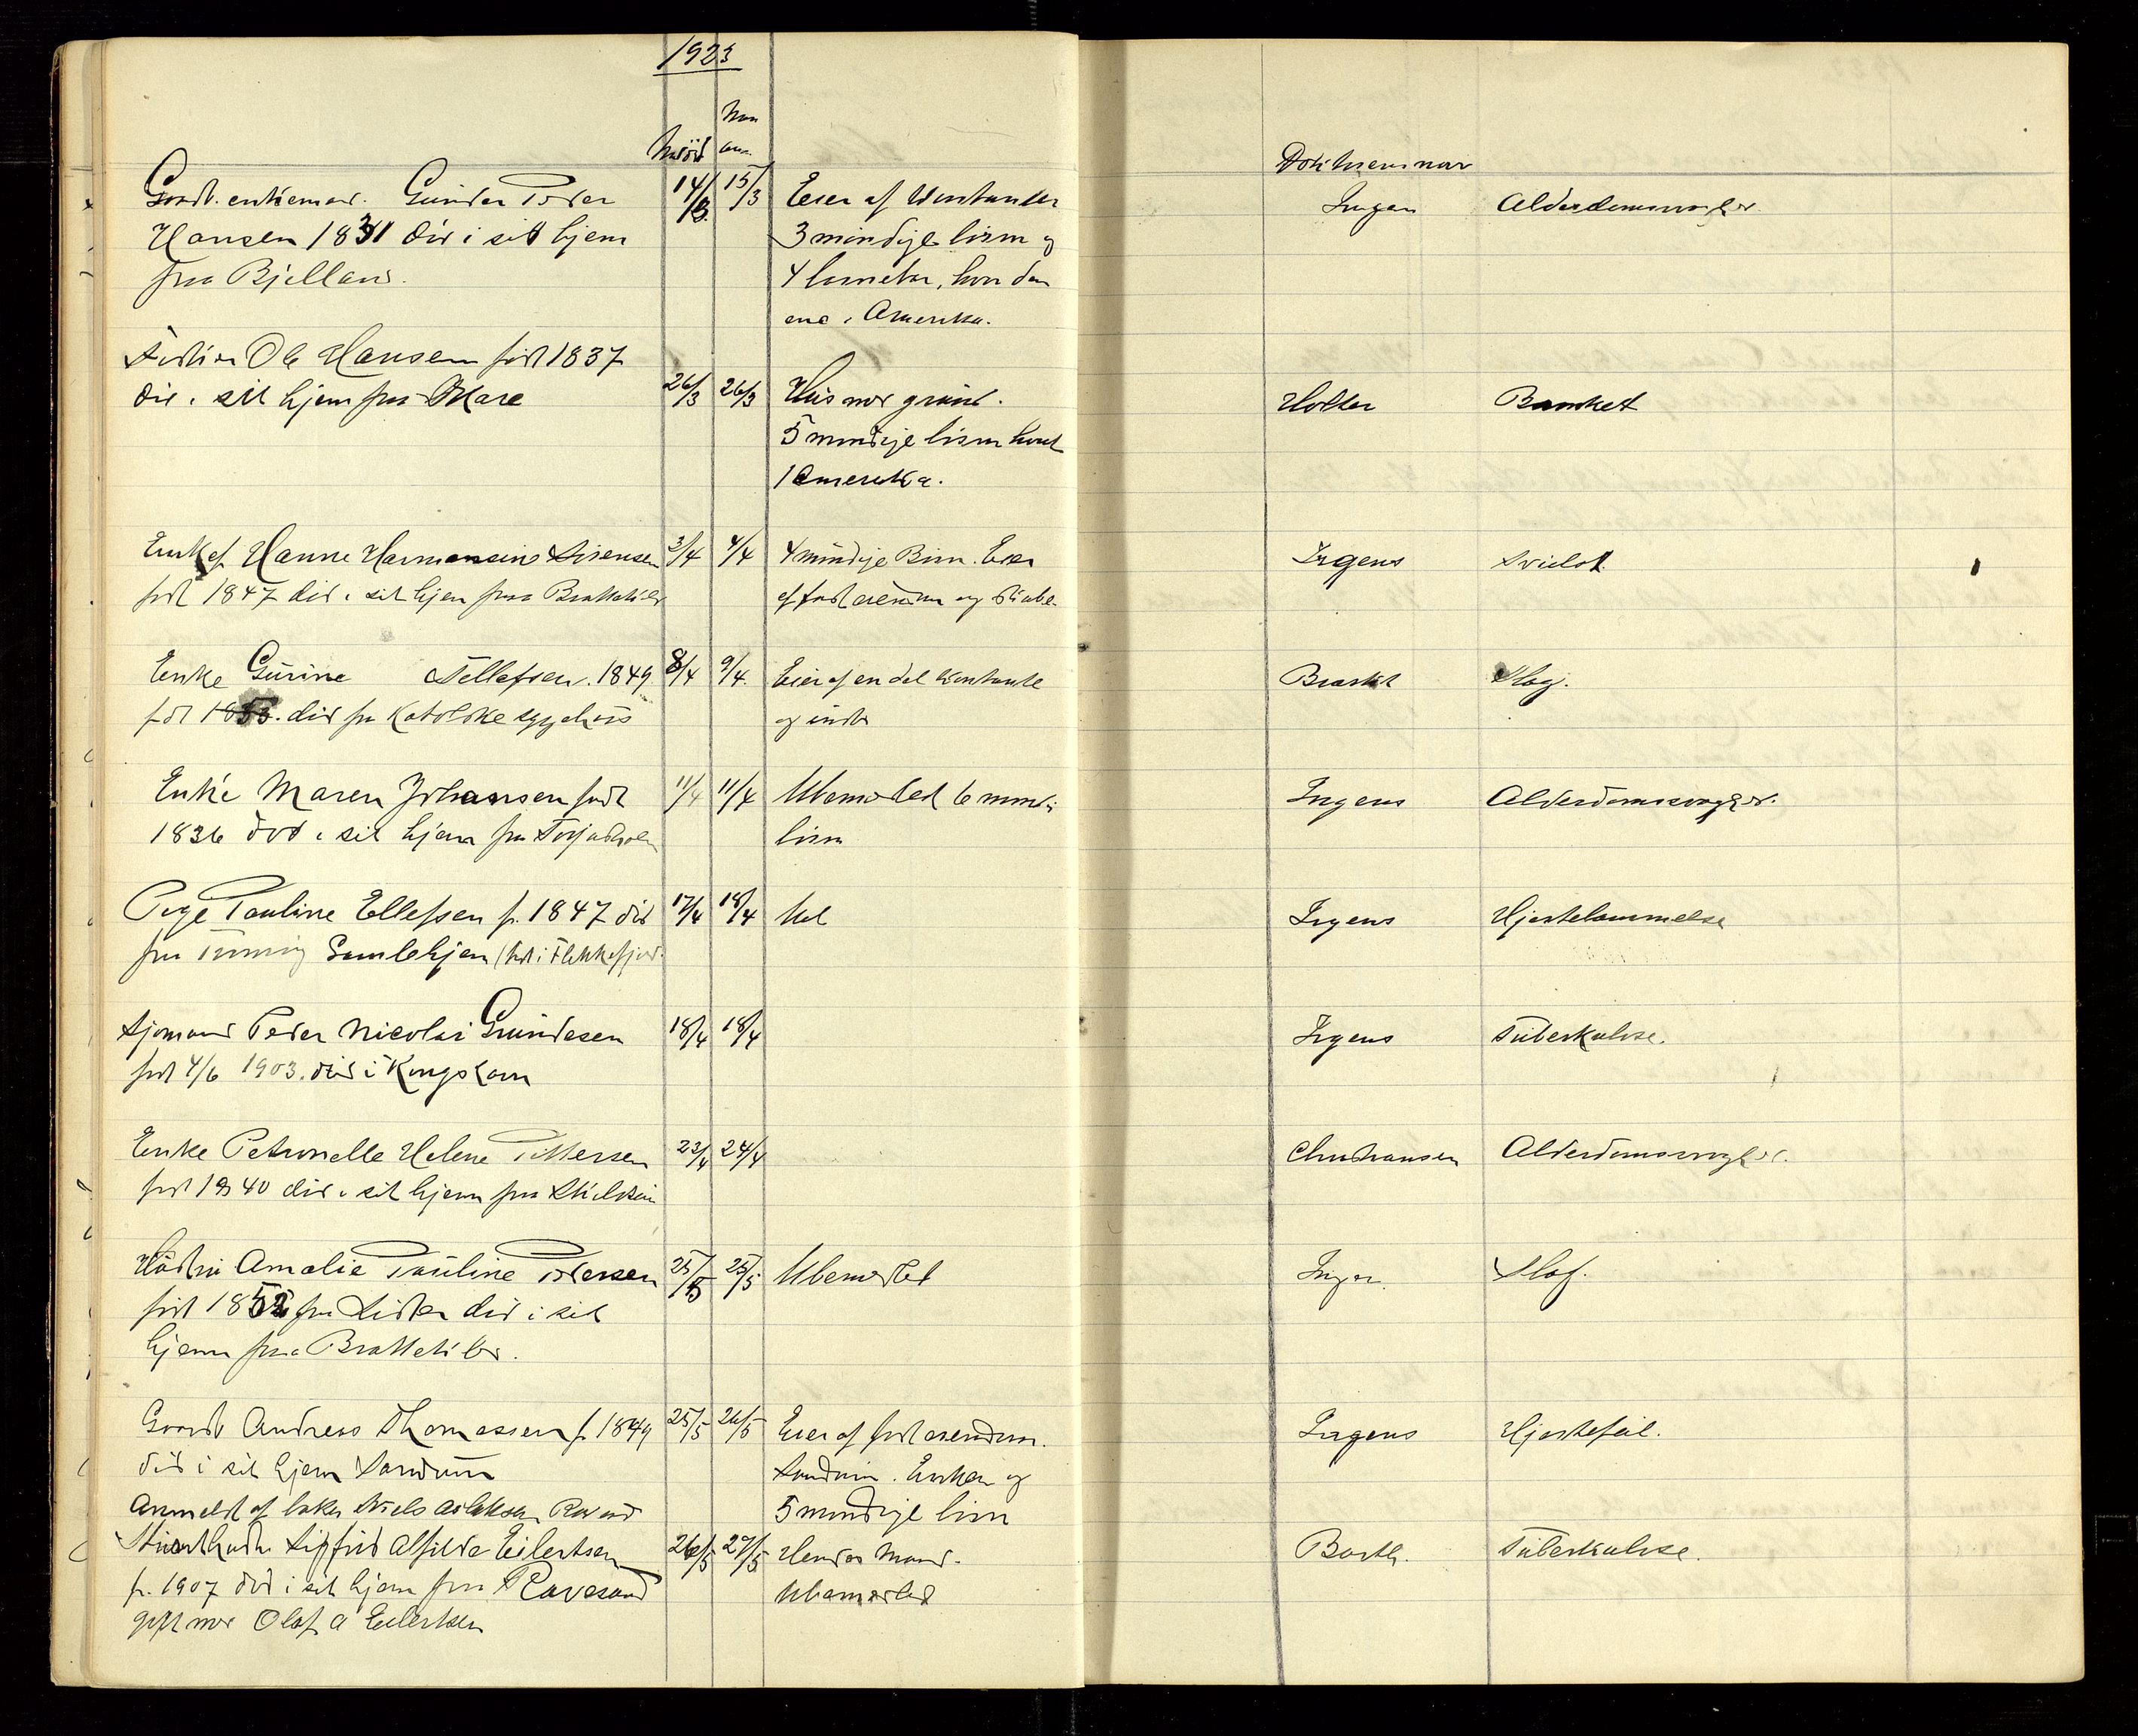 1923
Naar død Naar anm. Doktorens navn
Gaardb. enkemand. Gunder Peder 14/3 15/3 Eier af kontanter Irgens Alderdomssvaghed.
Hansen 1831 død i sit hjem 3 myndige børn og
fra Bjelland. 4 hvor den
ene i Amerika.
Ole Hansen født 1837
død i sit hjem fra Skare 26/3 26/3 Hus paa grund. Holter Brusket
5 myndige børn hvoraf
1 Amerika.
Enkef Hanne Sørensen 3/4 4/4 4 myndige Børn. Eier Irgens
født 1847 død i sit hjem fra Brattekleiv af fast eiendom og
Enke Gurine Tellefsen. 1849 8/4 9/4. Eier af en del kontante Slag.
født 1853. død fra Katolske sygehus og indbo
Enke Maren Johansen født 11/4 11/4 Ubemidlet 6 myndi Irgens Alderdomssvaghed.
1836 død i sit hjem fra Torjusholm børn
Pige Pauline Ellefsen f. 1847 død 17/4 18/4 Ub Irgens Hjertelammelse
fra Tromøy Gamlehjem (født i Flekkefjord.
Sjømand Peder Nicolai Gundesen 18/4 18/4 Irgens Tuberkulose.
født 4/6 1903. død i Kongshavn
Enke Petronelle Helene Pettersen 23/4 24/4 Christiansen Alderdomssvaghed.
født 1840 død i sit hjem fra Skilsøen
Hustru Amalie Pauline Pedersen 25/5 25/5 Ubemidlet Irgens Slag.
født 1852 fra Lister død i sit
hjem fra Brattekleiv.
Gaardb Andreas Thomassen f. 1849 25/5 26/5 Eier af fast eiendom. Irgens Hjertefeil.
død i sit hjem Sandum Sandum. Enken og
Anmeldt af Niels Aslaksen Ravnes 5 myndige børn
Sigfrid Alfilde Eilertsen 26/5 27/5 Hendes Mand. Barth. Tuberkulose.
f. 1907 død i sit hjem fra Ravesand Ubemidlet
gift med Olaf A Eilertsen